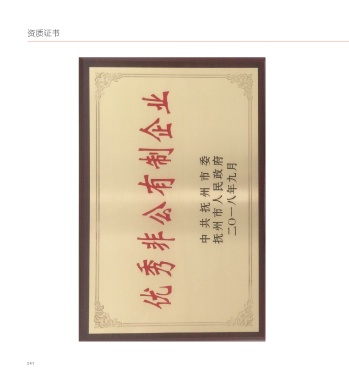 资质证书
优秀非公有制企业
中共抚州市委
抚州市人民政府
二〇一八年九月